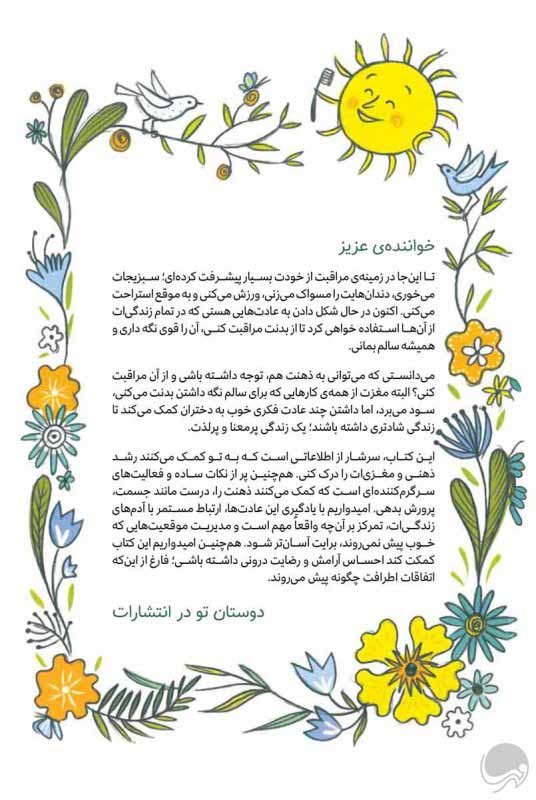 خواننده‌ی عزیز
تا این‌جا در زمینه‌ی مراقبت از خودت بسیار پیشرفت کرده‌ای؛ سبزیجات
می‌خوری، دندان‌هایت را مسواک می‌زنی، ورزش می‌کنی و به موقع استراحت
می‌کنی. اکنون در حال شکل دادن به عادت‌هایی هستی که در تمام زندگی‌ات
از آن‌ها استفاده خواهی کرد تا از بدنت مراقبت کنی، آن را قوی نگه داری و
همیشه سالم بمانی.
می‌دانستی که می‌توانی به ذهنت هم، توجه داشته باشی و از آن مراقبت
کنی؟ البته مغزت از همه‌ی کارهایی که برای سالم نگه داشتن بدنت می‌کنی،
سود می‌برد، اما داشتن چند عادت فکری خوب به دختران کمک می‌کند تا
زندگی شادتری داشته باشند؛ یک زندگی پرمعنا و پرلذت.
این کتاب، سرشار از اطلاعاتی است که به تو کمک می‌کنند رشد
ذهنی و مغزی‌ات را درک کنی. هم‌چنین پر از نکات ساده و فعالیت‌های
سرگرم‌کننده‌ای است که کمک می‌کنند ذهنت را، درست مانند جسمت،
پرورش بدهی. امیدواریم با یادگیری این عادت‌ها، ارتباط مستمر با آدم‌های
زندگی‌ات، تمرکز بر آن‌چه واقعاً مهم است و مدیریت موقعیت‌هایی که
خوب پیش نمی‌روند، برایت آسان‌تر شود. هم‌چنین امیدواریم این کتاب
کمکت کند احساس آرامش و رضایت درونی داشته باشی؛ فارغ از این‌که
اتفاقات اطرافت چگونه پیش می‌روند.
دوستان تو در انتشارات